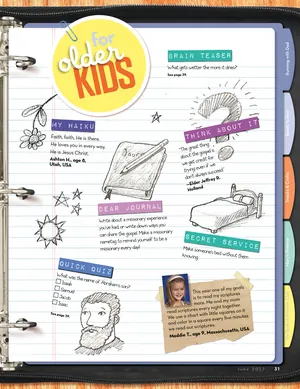 for
older
KIDS
BRAIN TEASER
What gets wetter the more it dries?
See page 39.
MY HAIKU
Faith, faith, He is there.
He loves you in every way.
He is Jesus Christ.
Ashton H., age 8,
Utah, USA
THINK ABOUT IT
"The great thing
about the gospel is
we get credit for
trying, even if we
don't always succeed."
—Elder Jeffrey R.
Holland
Journal
DEAR JOURNAL
Write about a missionary experience
you've had, or write down ways you
can share the gospel. Make a missionary
nametag to remind yourself to be a
missionary every day!
SECRET SERVICE
Make someone's bed without them
knowing.
QUICK QUIZ
What was the name of Abraham's son?
Isaiah
Samuel
Jacob
Isaac
See page 39.
This year one of my goals
is to read my scriptures
more. Me and my mom
read scriptures every night together.
We use a chart with little squares on it
and color in a square every five minutes
we read our scriptures.
Maddie T., age 9, Massachusetts, USA
June 2017
31